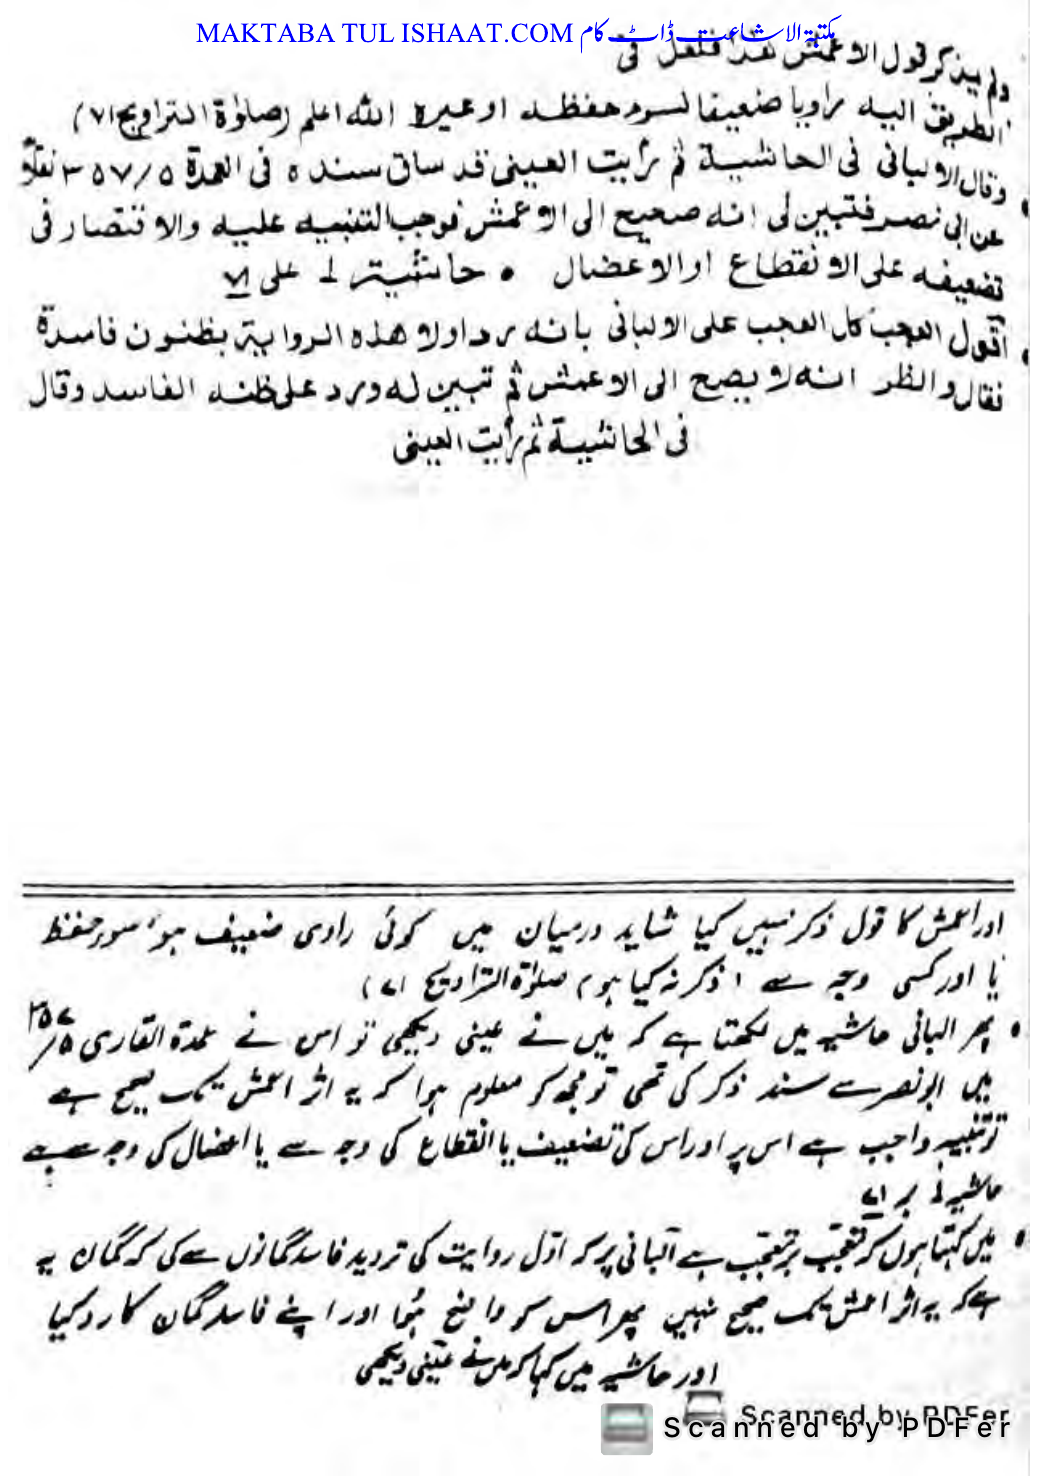 MAKTABA TUL ISHAAT.COM مکتبۃ الاشاعت ڈاٹ کام
ولم يذكر قول الاعمش هذا فلعل فى
الطريق اليه راويا ضعيفا لسوء حفظه او غيره الله اعلم (صلوٰة التراويح ۷۱)
وقال الالبانى فى الحاشية ثم رأيت العينى قد ساق سنده فى العمدة ۳۵۷/۵ نقلاً
عن ابى نصر فتبين لى انه صحيح الى الاعمش فوجب التنبيه عليه والاقتصار فى
تضعيفه على الانقطاع او الاعضال • حاشية ١ على ۷۱
اقول العجب كل العجب على الالبانى بانه رد اولا هذه الرواية بظنون فاسدة
فقال والظن انه لا يصح الى الاعمش ثم تبين له ورد على ظنه الفاسد وقال
فى الحاشية ثم رأيت العينى
اور اعمش کا قول ذکر نہیں کیا شاید درمیان میں کوئی راوی ضعیف ہو سوء حفظ
یا اور کسی وجہ سے (ذکر نہ کیا ہو) صلوٰۃ التراویح (۷۱)
پھر البانی حاشیہ میں لکھتا ہے کہ میں نے عینی دیکھی تو اس نے عمدۃ القاری ۳۵۷/۵
میں ابونصر سے سند ذکر کی تھی تو مجھ کو معلوم ہوا کہ یہ اثر اعمش تک صحیح ہے
تو تنبیہ واجب ہے اس پر اور اس کی تضعیف یا انقطاع کی وجہ سے یا اعضال کی وجہ سے ہے
حاشیہ ۱ بر ۷۱
میں کہتا ہوں کہ تعجب پر تعجب ہے البانی پر کہ اوّل روایت کی تردید فاسد گمانوں سے کی کہ گمان یہ
ہے کہ یہ اثر اعمش تک صحیح نہیں پھر اس کو واضح ہُوا اور اپنے فاسد گمان کا رد کیا
اور حاشیہ میں کہا کہ میں نے عینی دیکھی
Scanned by PDFer
Scanned by PDFer